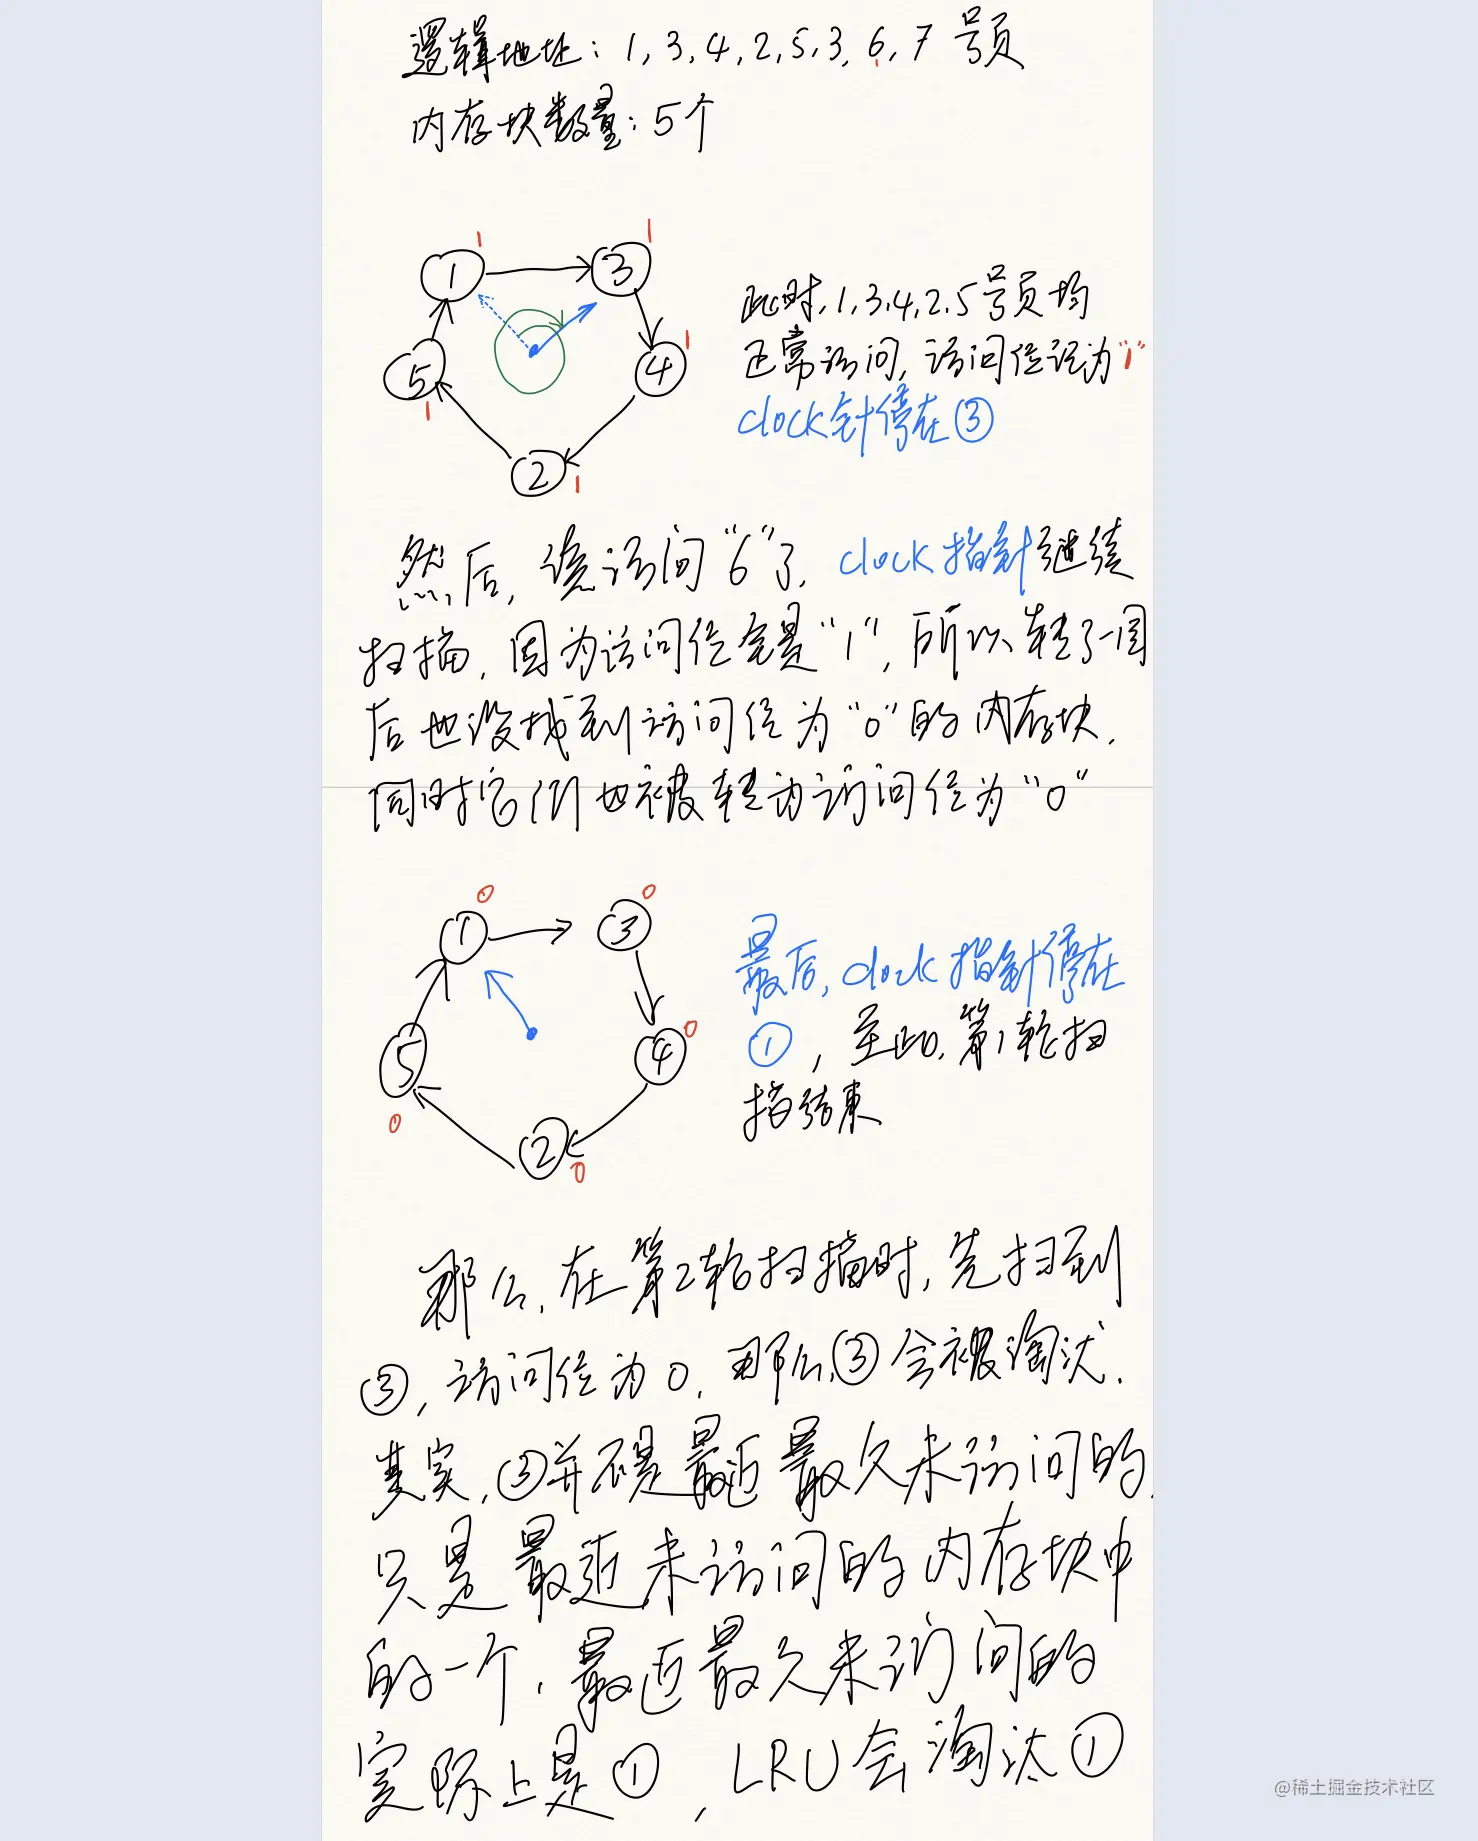 逻辑地址：1,3,4,2,5,3,6,7 号页
内存块数量：5个
1 1
1 3
此时,1,3,4,2,5号页均
正常访问,访问位记为"1"
1
5 4
clock针停在③
1
2 1
然后,该访问"6"了,clock指针继续
扫描,因为访问位全是"1",所以转了一周
后也没找到访问位为"0"的内存块.
同时它们也被转为访问位为"0"
0 0
1 3
最后,clock指针停在
0
①,至此,第1轮扫
5 4
描结束
0
2 0
那么,在第2轮扫描时,先扫到
③,访问位为0,那么,③会被淘汰.
其实,③并不是最近最久未访问的,
只是最近未访问的内存块中
的一个,最近最久未访问的
实际上是①,LRU会淘汰①
@稀土掘金技术社区